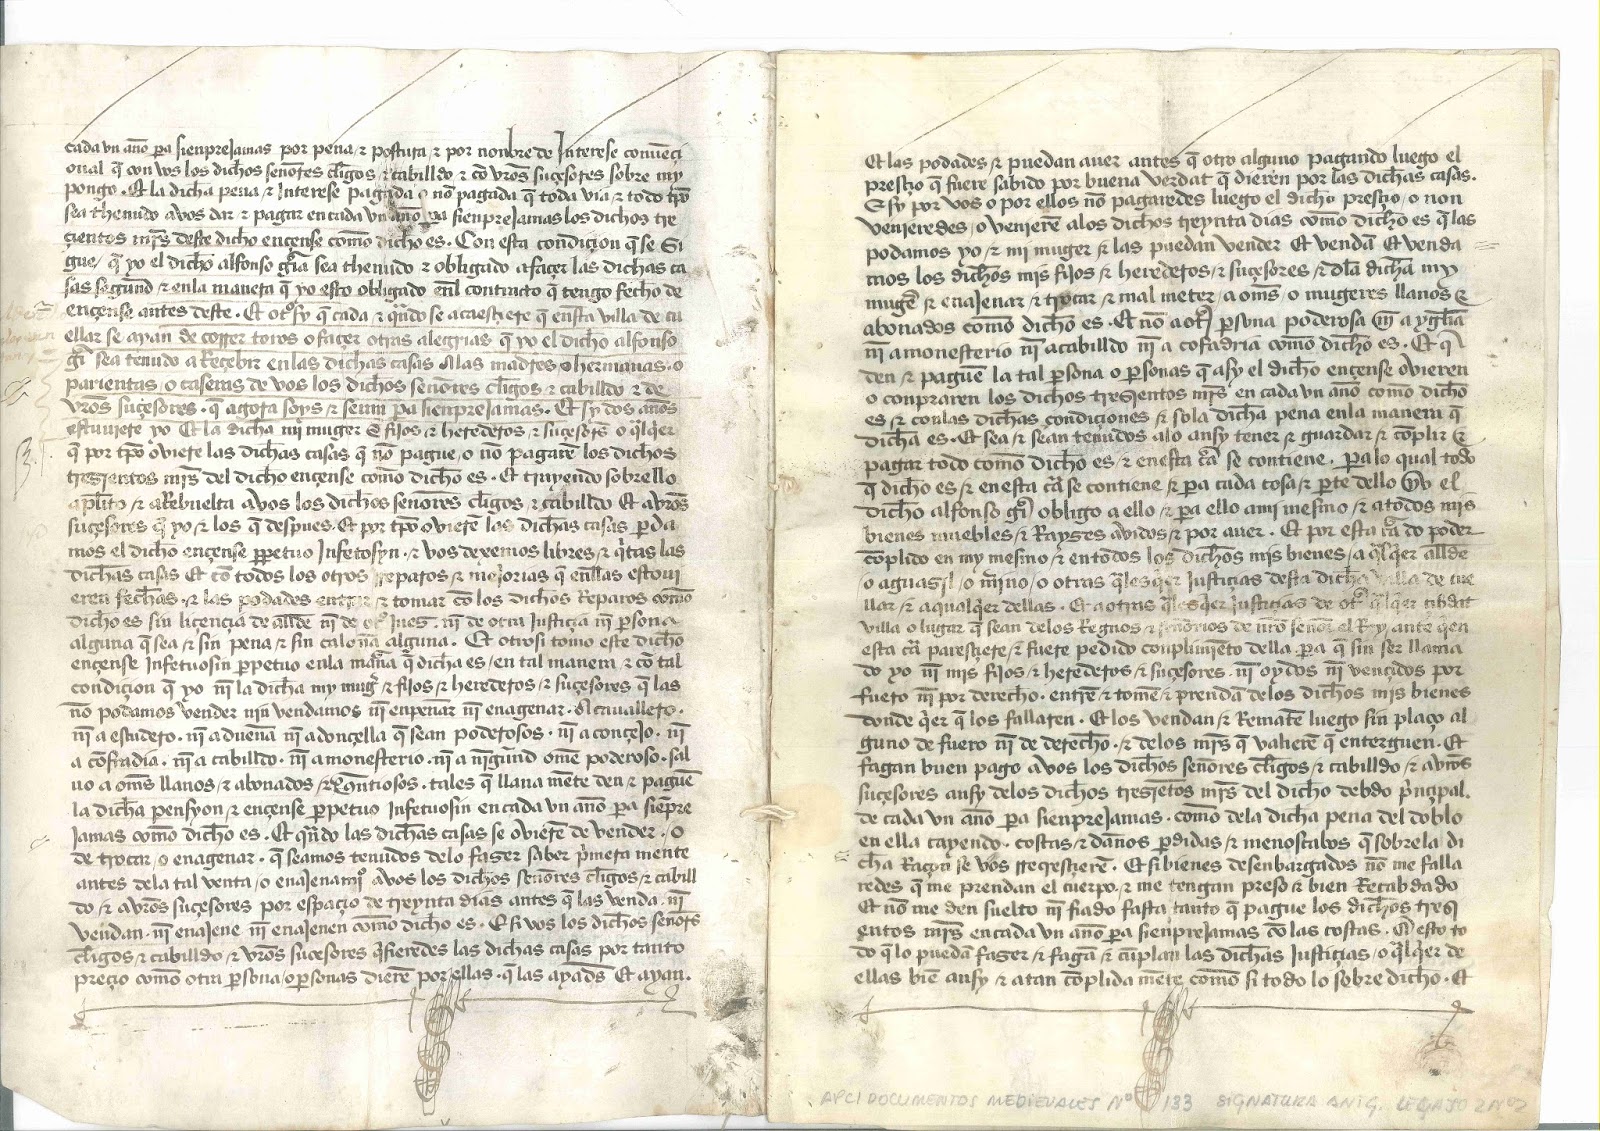 cada vn año pa sienpre Jamas por pena & postura & por nonbre de Interese conuenci
onal q̃ con vos los dichos señores cligos & cabilldo & cõ vrõs suçesores sobre my
pongo . Et la dicha pena & Interese pagada o nõ pagada q̃ toda via & todo tpõ
sea thenudo a vos dar & pagar en cada vn año pa sienpre Jamas los dichos tre
çientos mrs deste dicho ençense como dicho es . Con esta condiçion q̃ se si
gue / q̃ yo el dicho alfonso gr̃a sea thenudo & obligado a façer las dichas ca
sas segund & en la manera q̃ yo esto obligado enl contracto q̃ tengo fecho de
ençense antes deste . Et otsy q̃ cada & qñdo se acaesçiere q̃ ensta villa de cu
ellar se ayan de correr toros o façer otras alegrias q̃ yo el dicho alfonso
gr̃a sea tenudo a Reçebir en las dichas casas a las madres o hermanas . o
parientas / o caseras de vos los dichos señores cligos & cabilldo & de
vrõs suçesores . q̃ agora soys & seran pa sienpre Jamas . Et sy dos años
estuuiere yo Et la dicha mi muger & fijos & herederos & suçesores o qlqer
q̃ por tpõ ouiere las dichas casas q̃ nõ pague / o nõ pagare los dichos
tresientos mrs del dicho ençense como dicho es . Et trayendo sobrello
a plito & a Rebuelta a vos los dichos señores cligos & cabilldo Et a vrõs
suçesores q̃ yo & los q̃ despues . Et por tpõ ouiere las dichas casas perda
mos el dicho ençense ppetuo Infetosyn . & vos dexemos libres & qtas las
dichas casas Et cõ todos los otros reparos & mejorias q̃ enllas estoui
eren fechas . & las podades entrar & tomar cõ los dichos Reparos como
dicho es sin liçençia de allde nĩ de otº Jues . nĩ de otra Justiçia nĩ psona
alguna q̃ sea & sin pena & sin calonia alguna . Et otrosi tomo este dicho
ençense Infetuosin ppetuo en la manera q̃ dicha es / en tal manera & cõ tal
condiçion q̃ yo nĩ la dicha my mugr & fijos & herederos & suçesores q̃ las
nõ podamos vender nin vendamos nĩ enpenar nĩ enagenar . a cauallero .
nĩ a escudero . nĩ a dueña nĩ a donçella q̃ sean poderosos . nĩ a conçejo . nĩ
a cõfradia . nĩ a cabilldo . nĩ a monesterio . nĩ a nĩgund ome poderoso . sal
uo a oms llanos & abonados & q̃ntiosos . tales q̃ llana mẽte den & paguẽ
la dicha pensyon & ençense ppetuo Infetuosin en cada vn año pa sienpre
Jamas como dicho es . Et qñdo las dichas casas se ouierẽ de vender . o
de trocar / o enagenar . q̃ seamos tenudos delo faser saber pmera mente
antes dela tal venta / o enajenamiº a vos los dichos señores cligos & cabill
do & a vrõs suçesores por espaçio de treynta dias antes q̃ las venda . nĩ
vendan . nĩ enajene nĩ enajenen como dicho es . E si vos los dichos señores
cligos & cabilldo & vrõs suçesores qsieredes las dichas casas por tanto
preçio como otra psona / o psonas dierẽ por ellas . q̃ las ayads Et ayan .
Et las podades & puedan auer antes q̃ otro alguno pagando luego el
presçio q̃ fuere sabido por buena verdat q̃ dieren por las dichas casas .
E sy por vos o por ellos nõ pagaredes luego el dicho presçio / o non
venieredes / o venierẽ a los dichos treynta dias como dicho es q̃ las
podamos yo & mi muger & las puedan vender Et vendã Et venda
mos los dichos mis fijos & herederos & suçesores & dla dicha my
mugẽ & enajenar & trocar & mal meter a oms / o mugeres llanos &
abonados como dicho es . Et nõ a otª psona poderosa nĩ a ygllia
nĩ a monesterio nĩ a cabilldo nĩ a cofadria como dicho es . Et q̃
den & paguẽ la tal psona o psonas q̃ asy el dicho ençense ouieren
o conpraren los dichos tresientos mrs en cada vn año como dicho
es & con las dichas condiçiones & sola dicha pena en la manera q̃
dicha es . Et sea & sean tenudos a lo ansy tener & guardar & cõplir &
pagar todo como dicho es / & en esta crã se contiene . pa lo qual todo
q̃ dicho es & en esta crã se contiene & pa cada cosa & pte dello yo el
dicho alfonso gr̃a obligo a ello & pa ello a mi mesmo / & a todos mis
bienes muebles & Rayses auidos & por auer . Et por esta crã do poder
cõplido en my mesmo / & en todos los dichos mis bienes / a qlqer allde
o aguasil / o mĩno / o otras qlesqer Justiçias desta dicha villa de cue
llar & a qualqer dellas . Et a otras qlesqer justiçias de otª qlqer çibdat
villa o lugar q̃ sean delos Regnos & señorios de nrõ señor el Rey ante qen
esta crã paresçiere & fuere pedido conplimẽto della pa q̃ sin ser llama
do yo nĩ mis fijos & herederos & suçesores . nĩ oydos nĩ vençidos por
fuero nĩ por derecho . entrẽ & tomẽ & prendã de los dichos mis bienes
donde qer q̃ los fallaren . Et los vendan & Rematẽ luego sin plaço al
guno de fuero nĩ de derecho . & delos mrs q̃ valierẽ q̃ enterguen . Et
fagan buen pago a vos los dichos señores cligos & cabilldo & a vrõs
suçesores ansy delos dichos tresietos mrs del dicho debdo prncipal .
de cada vn año pa sienpre Jamas . como dela dicha pena del doblo
en ella cayendo . costas & daños pdidas & menoscabos q̃ sobre la di
cha Raçon se vos rrecresçierẽ . Et si bienes desenbargados nõ me falla
redes q̃ me prendan el cuerpo & me tengan preso & bien Recabdado
Et nõ me den suelto nĩ fiado fasta tanto q̃ pague los dichos tresi
entos mrs en cada vn año pa sienpre Jamas cõ las costas . & esto to
do q̃ lo puedã faser & fagã & cunplan las dichas Justiçias / o qlqer de
ellas biẽ ansy & a tan cõplida mẽte como si todo lo sobre dicho . Et
APCI DOCUMENTOS MEDIEVALES Nº 133 SIGNATURA ANTG. LEGAJO 2 Nº 2